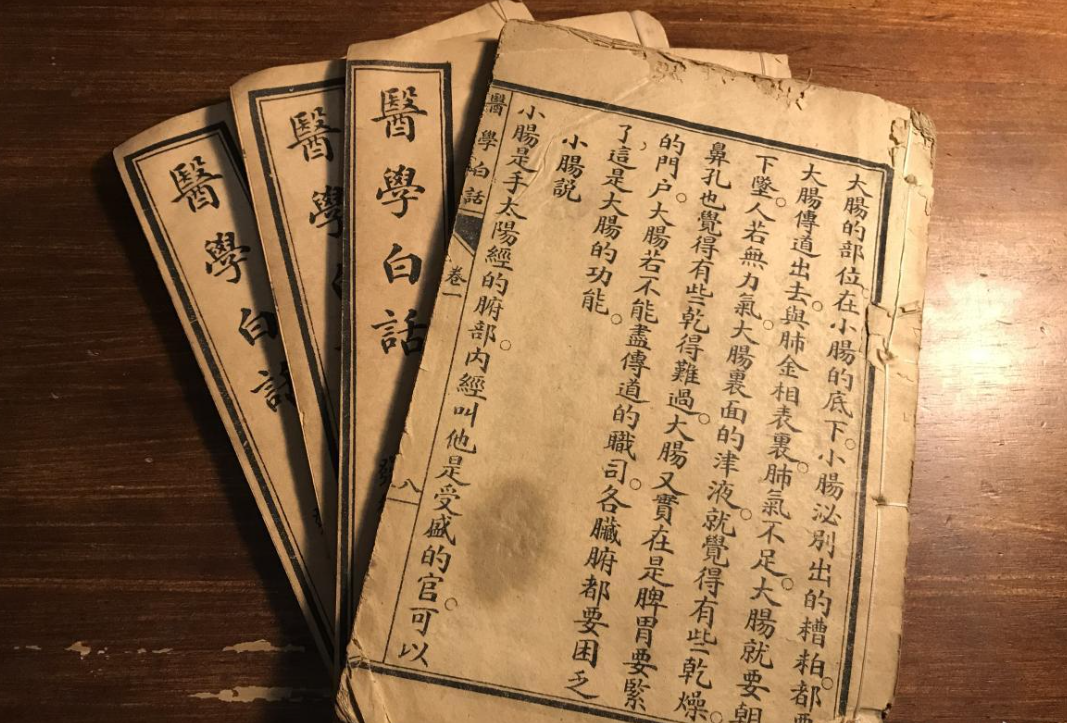 大腸的部位在小腸的底下。小腸泌別出的糟粕。都要
大腸傳道出去。與肺金相表裏。肺氣不足。大腸就要朝
下墜。人若無力氣。大腸裏面的津液。就覺得有些乾燥。
鼻孔也覺得有些乾得難過。大腸又實在是脾胃要緊
的門户。大腸若不能盡傳道的職司。各臟腑都要困乏
了這是大腸的功能。
小腸説
小腸是手太陽經的腑部。內經叫他是受盛的官。可以
醫學白話 卷一 八
醫學白話
醫學
醫學白話